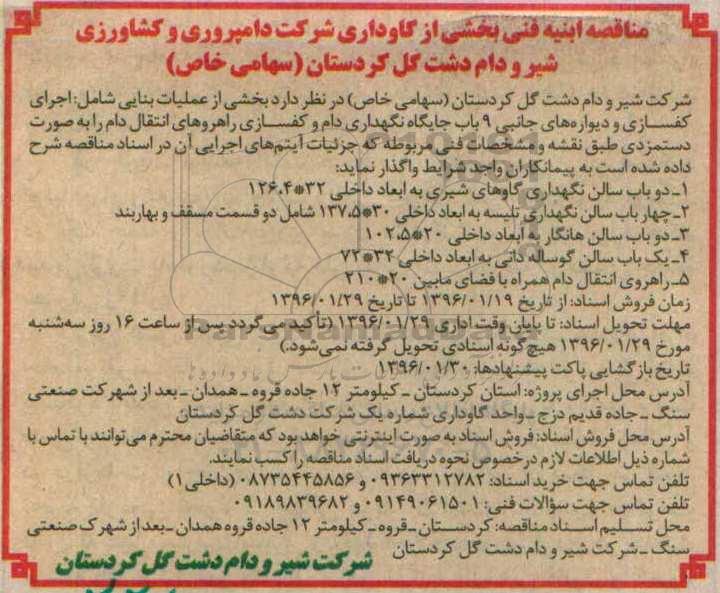 مناقصه ابنیه فنی بخشی از گاوداری شرکت دامپروری و کشاورزی
شیر و دام دشت گل کردستان (سهامی خاص)
شرکت شیر و دام دشت گل کردستان (سهامی خاص) در نظر دارد بخشی از عملیات بنایی شامل: اجرای
کفسازی و دیواره‌های جانبی ۹ باب جایگاه نگهداری دام و کفسازی راهروهای انتقال دام را به صورت
دستمزدی طبق نقشه و مشخصات فنی مربوطه که جزئیات آیتم‌های اجرایی آن در اسناد مناقصه شرح
داده شده است به پیمانکاران واجد شرایط واگذار نماید:
۱ـ دو باب سالن نگهداری گاوهای شیری به ابعاد داخلی ۳۲*۱۲۶.۴
۲ـ چهار باب سالن نگهداری تلیسه به ابعاد داخلی ۳۰*۱۳۷.۵ شامل دو قسمت مسقف و بهاربند
۳ـ دو باب سالن هانگار به ابعاد داخلی ۲۰*۱۰۲.۵
۴ـ یک باب سالن گوساله دانی به ابعاد داخلی ۳۲*۷۲
۵ـ راهروی انتقال دام همراه با فضای مابین ۲۰*۲۱۰
زمان فروش اسناد: از تاریخ ۱۳۹۶/۰۱/۱۹ تا تاریخ ۱۳۹۶/۰۱/۲۹
مهلت تحویل اسناد: تا پایان وقت اداری ۱۳۹۶/۰۱/۲۹ (تأکید می‌گردد پس از ساعت ۱۶ روز سه‌شنبه
مورخ ۱۳۹۶/۰۱/۲۹ هیچ گونه اسنادی تحویل گرفته نمی‌شود.)
تاریخ بازگشایی پاکت پیشنهادها: ۱۳۹۶/۰۱/۳۰
آدرس محل اجرای پروژه: استان کردستان ـ کیلومتر ۱۲ جاده قروه ـ همدان ـ بعد از شهرکت صنعتی
سنگ ـ جاده قدیم دزج ـ واحد گاوداری شماره یک شرکت دشت گل کردستان
آدرس محل فروش اسناد: فروش اسناد به صورت اینترنتی خواهد بود که متقاضیان محترم می‌توانند با تماس با
شماره ذیل اطلاعات لازم درخصوص نحوه دریافت اسناد مناقصه را کسب نمایند.
تلفن تماس جهت خرید اسناد: ۰۹۳۶۳۳۱۲۷۸۲ و ۰۸۷۳۵۴۴۵۸۵۶ (داخلی ۱)
تلفن تماس جهت سؤالات فنی: ۰۹۱۴۹۰۶۱۵۰۱ و ۰۹۱۸۹۸۳۹۶۸۲
محل تسلیم اسناد مناقصه: کردستان ـ قروه ـ کیلومتر ۱۲ جاده قروه همدان ـ بعد از شهرک صنعتی
سنگ ـ شرکت شیر و دام دشت گل کردستان
شرکت شیر و دام دشت گل کردستان